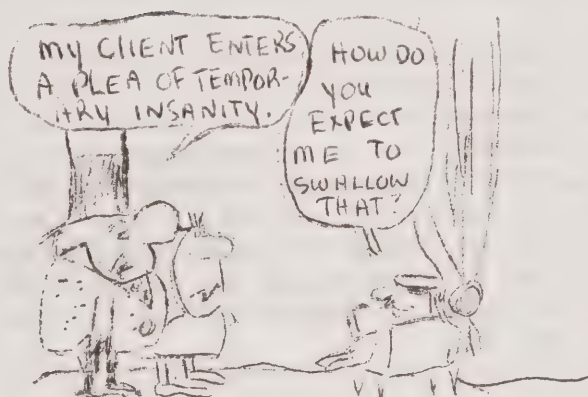 MY CLIENT ENTERS
A PLEA OF TEMPOR-
ARY INSANITY.
HOW DO
YOU
EXPECT
ME TO
SWALLOW
THAT?